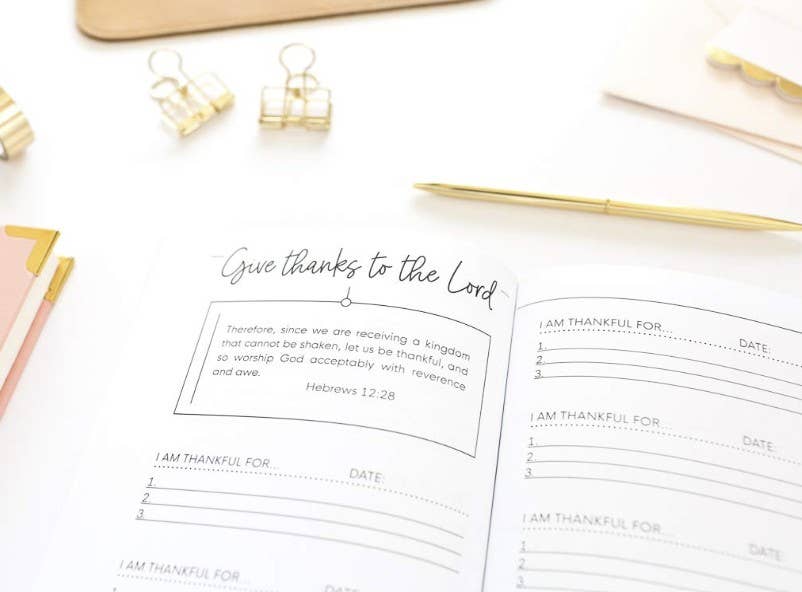 Give thanks to the Lord
Therefore, since we are receiving a kingdom
that cannot be shaken, let us be thankful, and
so worship God acceptably with reverence
and awe.
Hebrews 12:28
I AM THANKFUL FOR...
DATE:
1.
2.
3.
I AM THANKFUL FOR...
DATE:
I AM THANKFUL FOR...
DATE:
1.
2.
3.
I AM THANKFUL FOR...
DATE:
1.
2.
3.
I AM THANKFUL FOR...
DATE:
1.
2.
3.